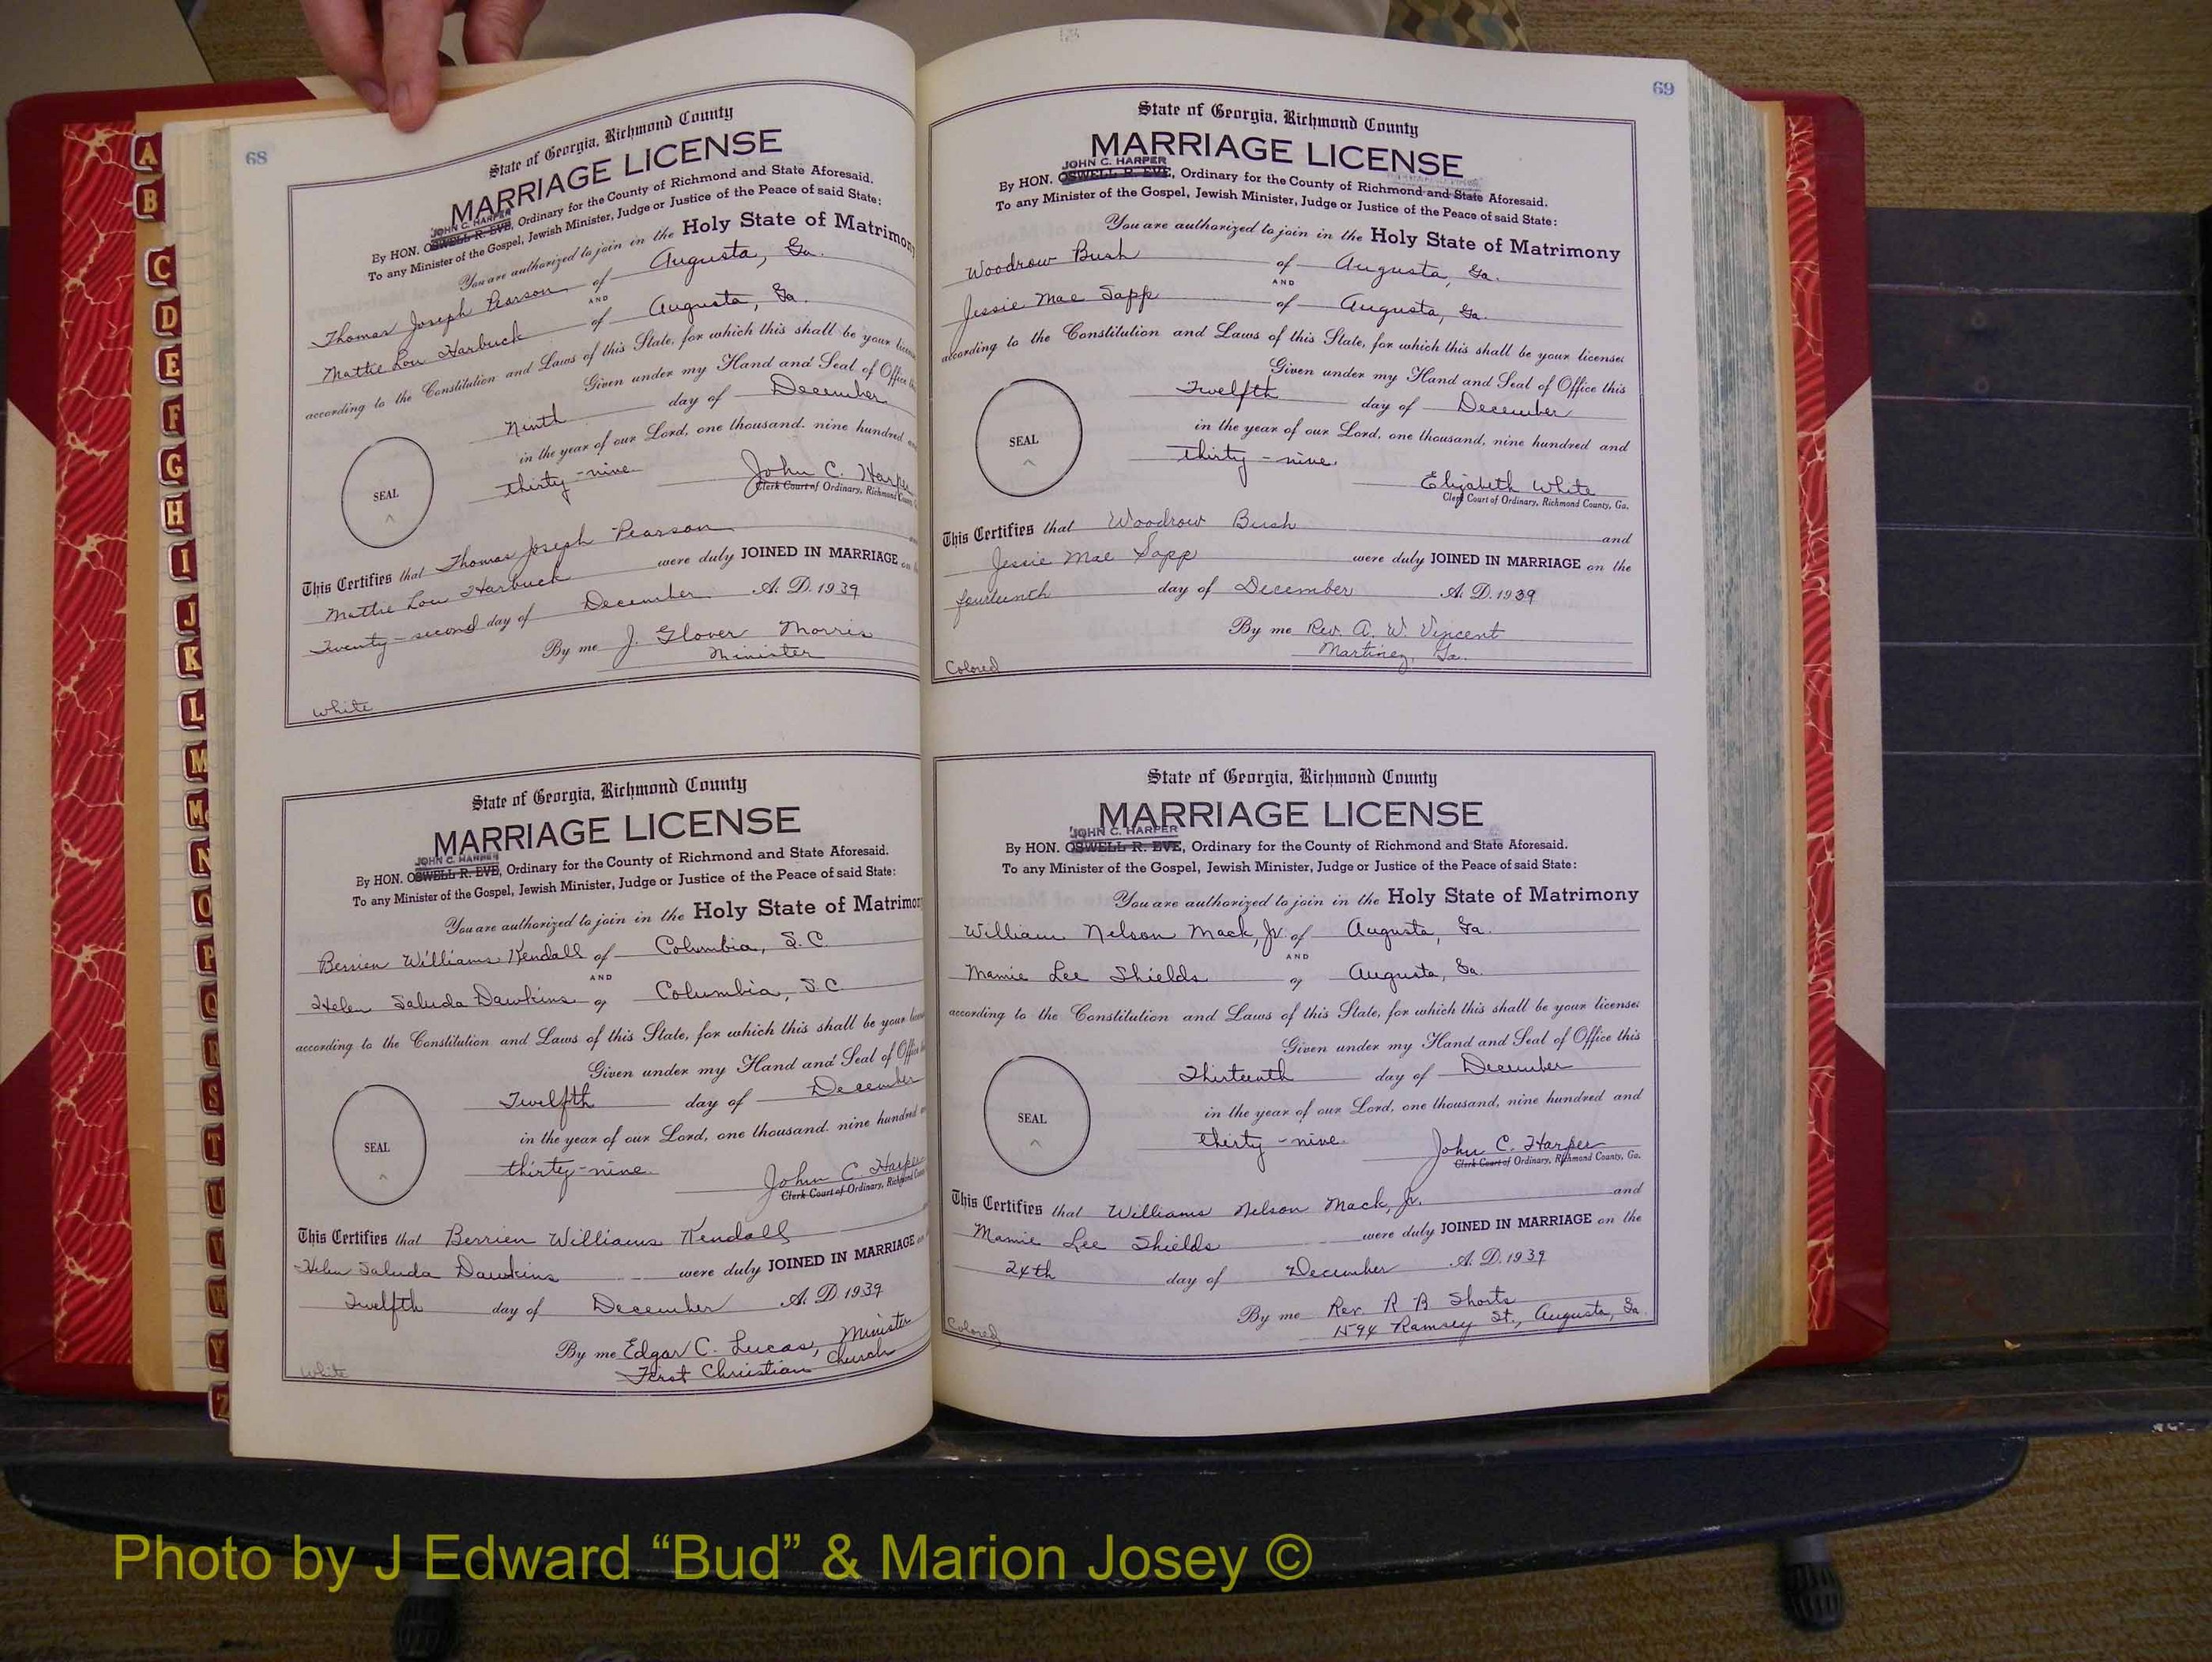 A
B
C
D
E
F
G
H
I
J
K
L
M
Mc
N
O
P
Q
R
S
T
U
V
W
Y
Z
68
State of Georgia, Richmond County
MARRIAGE LICENSE
JOHN C. HARPER
By HON. OSWELL R. EVE, Ordinary for the County of Richmond and State Aforesaid.
To any Minister of the Gospel, Jewish Minister, Judge or Justice of the Peace of said State:
You are authorized to join in the Holy State of Matrimony
Thomas Joseph Pearson of Augusta, Ga.
AND
Mattie Lou Harbuck of Augusta, Ga.
according to the Constitution and Laws of this State, for which this shall be your license
Given under my Hand and Seal of Office
Ninth day of December
in the year of our Lord, one thousand, nine hundred
thirty-nine. John C. Harper
SEAL
Clerk Court of Ordinary, Richmond County
This Certifies that Thomas Joseph Pearson
Mattie Lou Harbuck were duly JOINED IN MARRIAGE on
Twenty-second day of December A. D. 1939
By me J. Glover Morris
Minister
White
State of Georgia, Richmond County
MARRIAGE LICENSE
JOHN C. HARPER
By HON. OSWELL R. EVE, Ordinary for the County of Richmond and State Aforesaid.
To any Minister of the Gospel, Jewish Minister, Judge or Justice of the Peace of said State:
You are authorized to join in the Holy State of Matrimon
Berrien Williams Kendall of Columbia, S.C.
AND
Helen Saluda Dawkins of Columbia, S.C.
according to the Constitution and Laws of this State, for which this shall be your license
Given under my Hand and Seal of Office
Twelfth day of December
in the year of our Lord, one thousand, nine hundred
thirty-nine. John C. Harper
SEAL
Clerk Court of Ordinary, Richmond County
This Certifies that Berrien Williams Kendall
Helen Saluda Dawkins were duly JOINED IN MARRIAGE
Twelfth day of December A. D. 1939
By me Edgar C. Lucas, Minister
First Christian Church
White
69
State of Georgia, Richmond County
MARRIAGE LICENSE
JOHN C. HARPER
By HON. OSWELL R. EVE, Ordinary for the County of Richmond and State Aforesaid.
To any Minister of the Gospel, Jewish Minister, Judge or Justice of the Peace of said State:
You are authorized to join in the Holy State of Matrimony
Woodrow Bush of Augusta, Ga.
AND
Jessie Mae Sapp of Augusta, Ga.
according to the Constitution and Laws of this State, for which this shall be your license:
Given under my Hand and Seal of Office this
Twelfth day of December
in the year of our Lord, one thousand, nine hundred and
thirty-nine.
SEAL
Elizabeth White
Clerk Court of Ordinary, Richmond County, Ga.
This Certifies that Woodrow Bush and
Jessie Mae Sapp were duly JOINED IN MARRIAGE on the
fourteenth day of December A. D. 1939
By me Rev. A. W. Vincent
Martinez, Ga.
Colored
State of Georgia, Richmond County
MARRIAGE LICENSE
JOHN C. HARPER
By HON. OSWELL R. EVE, Ordinary for the County of Richmond and State Aforesaid.
To any Minister of the Gospel, Jewish Minister, Judge or Justice of the Peace of said State:
You are authorized to join in the Holy State of Matrimony
William Nelson Mack, Jr. of Augusta, Ga.
AND
Mamie Lee Shields of Augusta, Ga.
according to the Constitution and Laws of this State, for which this shall be your license:
Given under my Hand and Seal of Office this
Thirteenth day of December
in the year of our Lord, one thousand, nine hundred and
thirty-nine. John C. Harper
SEAL
Clerk Court of Ordinary, Richmond County, Ga.
This Certifies that Williams Nelson Mack, Jr. and
Mamie Lee Shields were duly JOINED IN MARRIAGE on the
24th day of December A. D. 1939
By me Rev. R B Shorts
1594 Ramsey St., Augusta, Ga.
Colored
Photo by J Edward “Bud” & Marion Josey ©